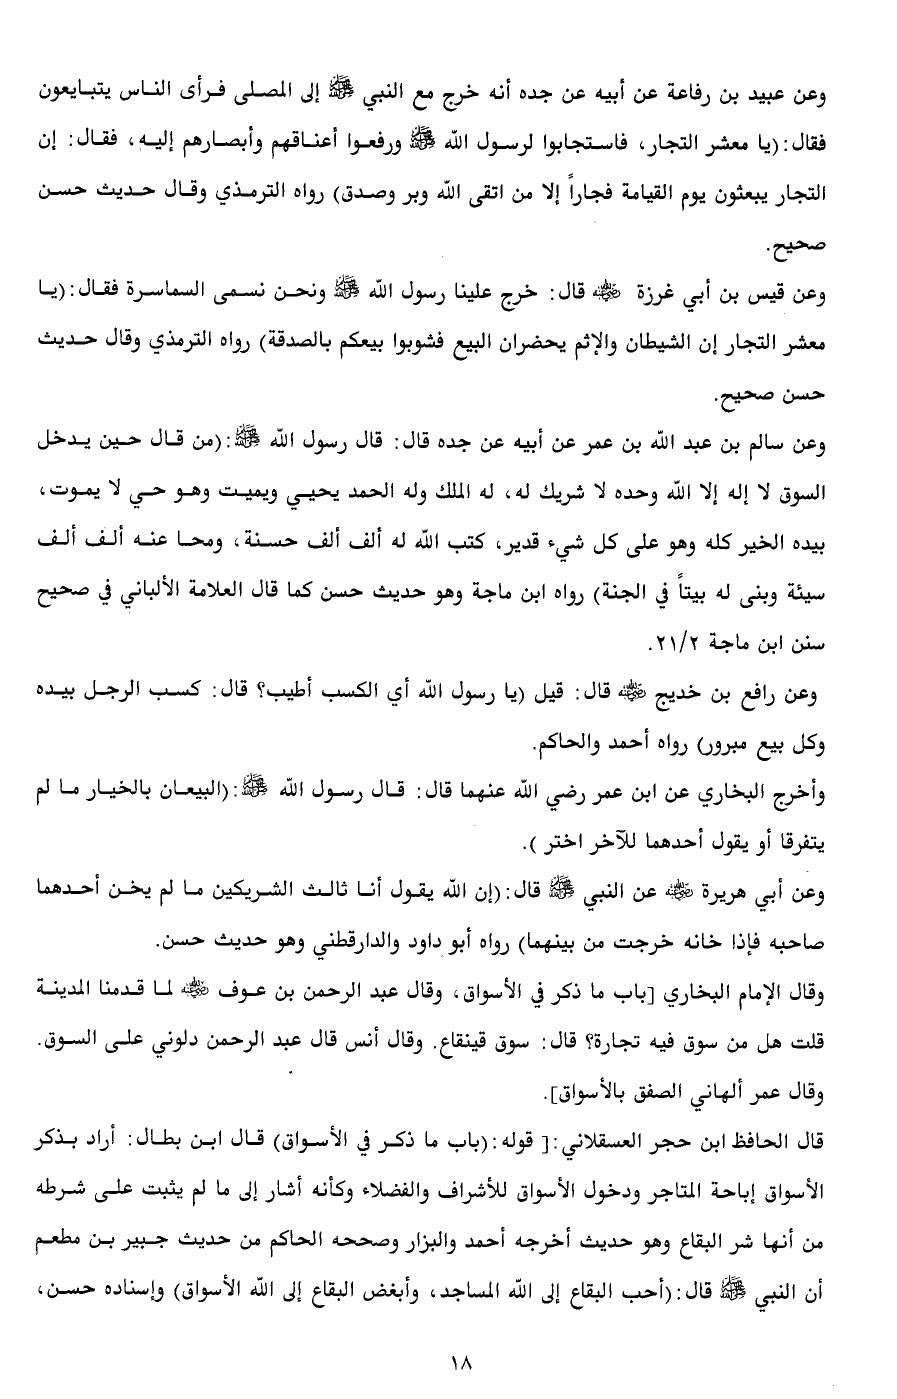 وعن عبيد بن رفاعة عن أبيه عن جده أنه خرج مع النبي ﷺ إلى المصلى فرأى الناس يتبايعون
فقال:(يا معشر التجار، فاستجابوا لرسول الله ﷺ ورفعوا أعناقهم وأبصارهم إليه، فقال: إن
التجار يبعثون يوم القيامة فجاراً إلا من اتقى الله وبر وصدق) رواه الترمذي وقال حديث حسن
صحيح.
وعن قيس بن أبي غرزة ﷺ قال: خرج علينا رسول الله ﷺ ونحن نسمى السماسرة فقال:(يا
معشر التجار إن الشيطان والإثم يحضران البيع فشوبوا بيعكم بالصدقة) رواه الترمذي وقال حديث
حسن صحيح.
وعن سالم بن عبد الله بن عمر عن أبيه عن جده قال: قال رسول الله ﷺ:(من قال حين يدخل
السوق لا إله إلا الله وحده لا شريك له، له الملك وله الحمد يحيي ويميت وهو حي لا يموت،
بيده الخير كله وهو على كل شيء قدير، كتب الله له ألف ألف حسنة، ومحا عنه ألف ألف
سيئة وبنى له بيتاً في الجنة) رواه ابن ماجة وهو حديث حسن كما قال العلامة الألباني في صحيح
سنن ابن ماجة ٢١/٢.
وعن رافع بن خديج رضي الله عنه قال: قيل (يا رسول الله أي الكسب أطيب؟ قال: كسب الرجل بيده
وكل بيع مبرور) رواه أحمد والحاكم.
وأخرج البخاري عن ابن عمر رضي الله عنهما قال: قال رسول الله ﷺ:(البيعان بالخيار ما لم
يتفرقا أو يقول أحدهما للآخر اختر ).
وعن أبي هريرة رضي الله عنه عن النبي ﷺ قال:(إن الله يقول أنا ثالث الشريكين ما لم يخن أحدهما
صاحبه فإذا خانه خرجت من بينهما) رواه أبو داود والدارقطني وهو حديث حسن.
وقال الإمام البخاري [باب ما ذكر في الأسواق، وقال عبد الرحمن بن عوف رضي الله عنه لما قدمنا المدينة
قلت هل من سوق فيه تجارة؟ قال: سوق قينقاع. وقال أنس قال عبد الرحمن دلوني على السوق.
وقال عمر ألهاني الصفق بالأسواق].
قال الحافظ ابن حجر العسقلاني:[ قوله:(باب ما ذكر في الأسواق) قال ابن بطال: أراد بذكر
الأسواق إباحة المتاجر ودخول الأسواق للأشراف والفضلاء وكأنه أشار إلى ما لم يثبت على شرطه
من أنها شر البقاع وهو حديث أخرجه أحمد والبزار وصححه الحاكم من حديث جبير بن مطعم
أن النبي ﷺ قال:(أحب البقاع إلى الله المساجد، وأبغض البقاع إلى الله الأسواق) وإسناده حسن،
١٨